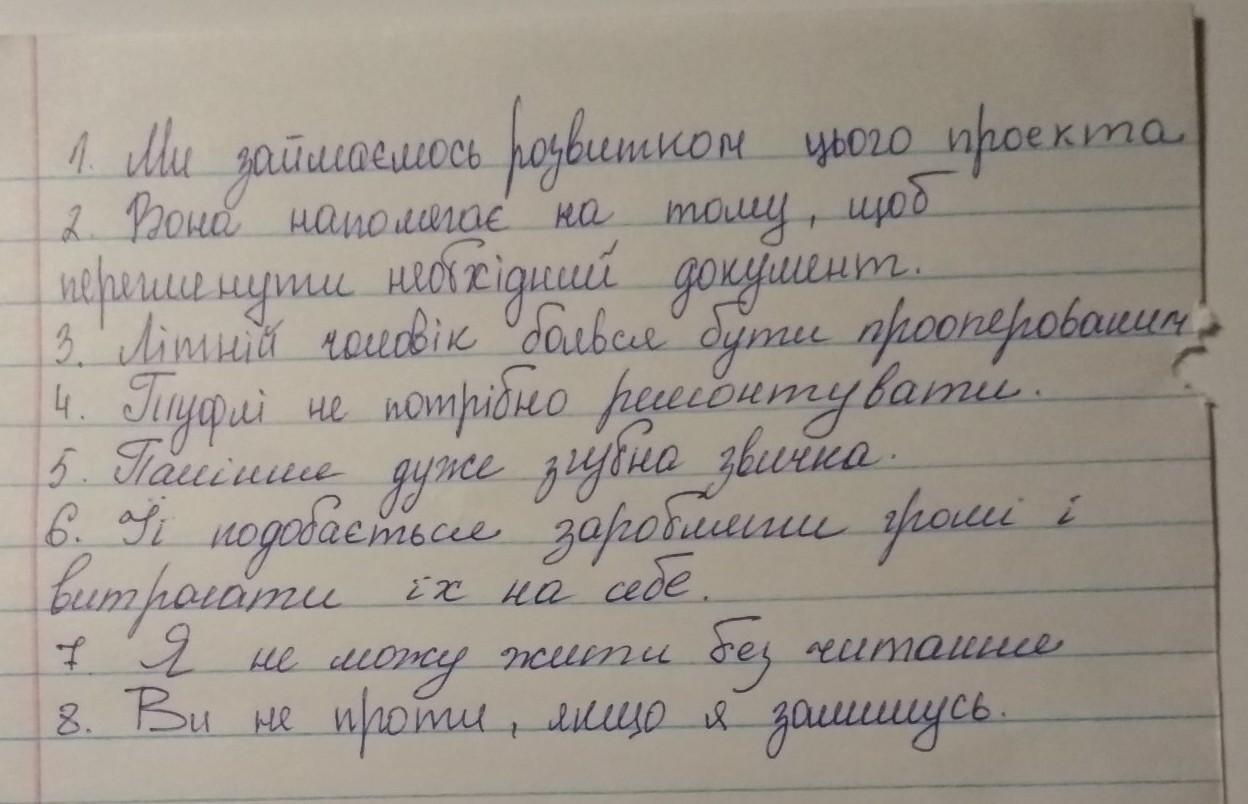 1. Ми займаємось розвитком цього проєкта
2. Вона наполягає на тому, щоб
переглянути необхідний документ.
3. Літній чоловік боявся бути прооперованим
4. Туфлі не потрібно ремонтувати.
5. Паління дуже згубна звичка.
6. Їй подобається заробляти гроші і
витрачати їх на себе.
7 Я не можу жити без читання
8. Ви не проти, якщо я залишусь.